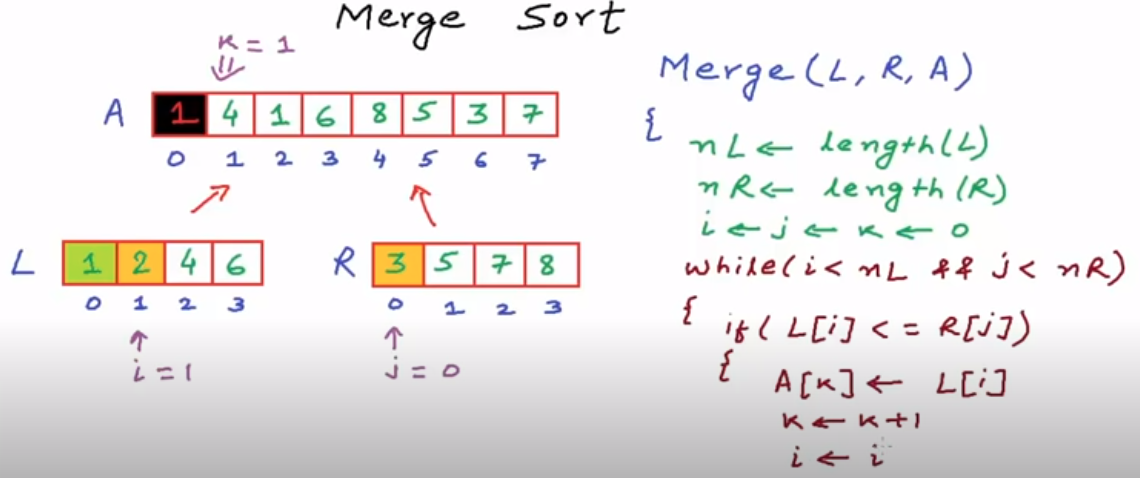 Merge Sort
k = 1
A 1 4 1 6 8 5 3 7
0 1 2 3 4 5 6 7
L 1 2 4 6
0 1 2 3
i = 1
R 3 5 7 8
0 1 2 3
j = 0
Merge(L, R, A)
{
nL ← length(L)
nR ← length(R)
i ← j ← k ← 0
while(i < nL && j < nR)
{ if( L[i] <= R[j])
{ A[k] ← L[i]
k ← k+1
i ← i